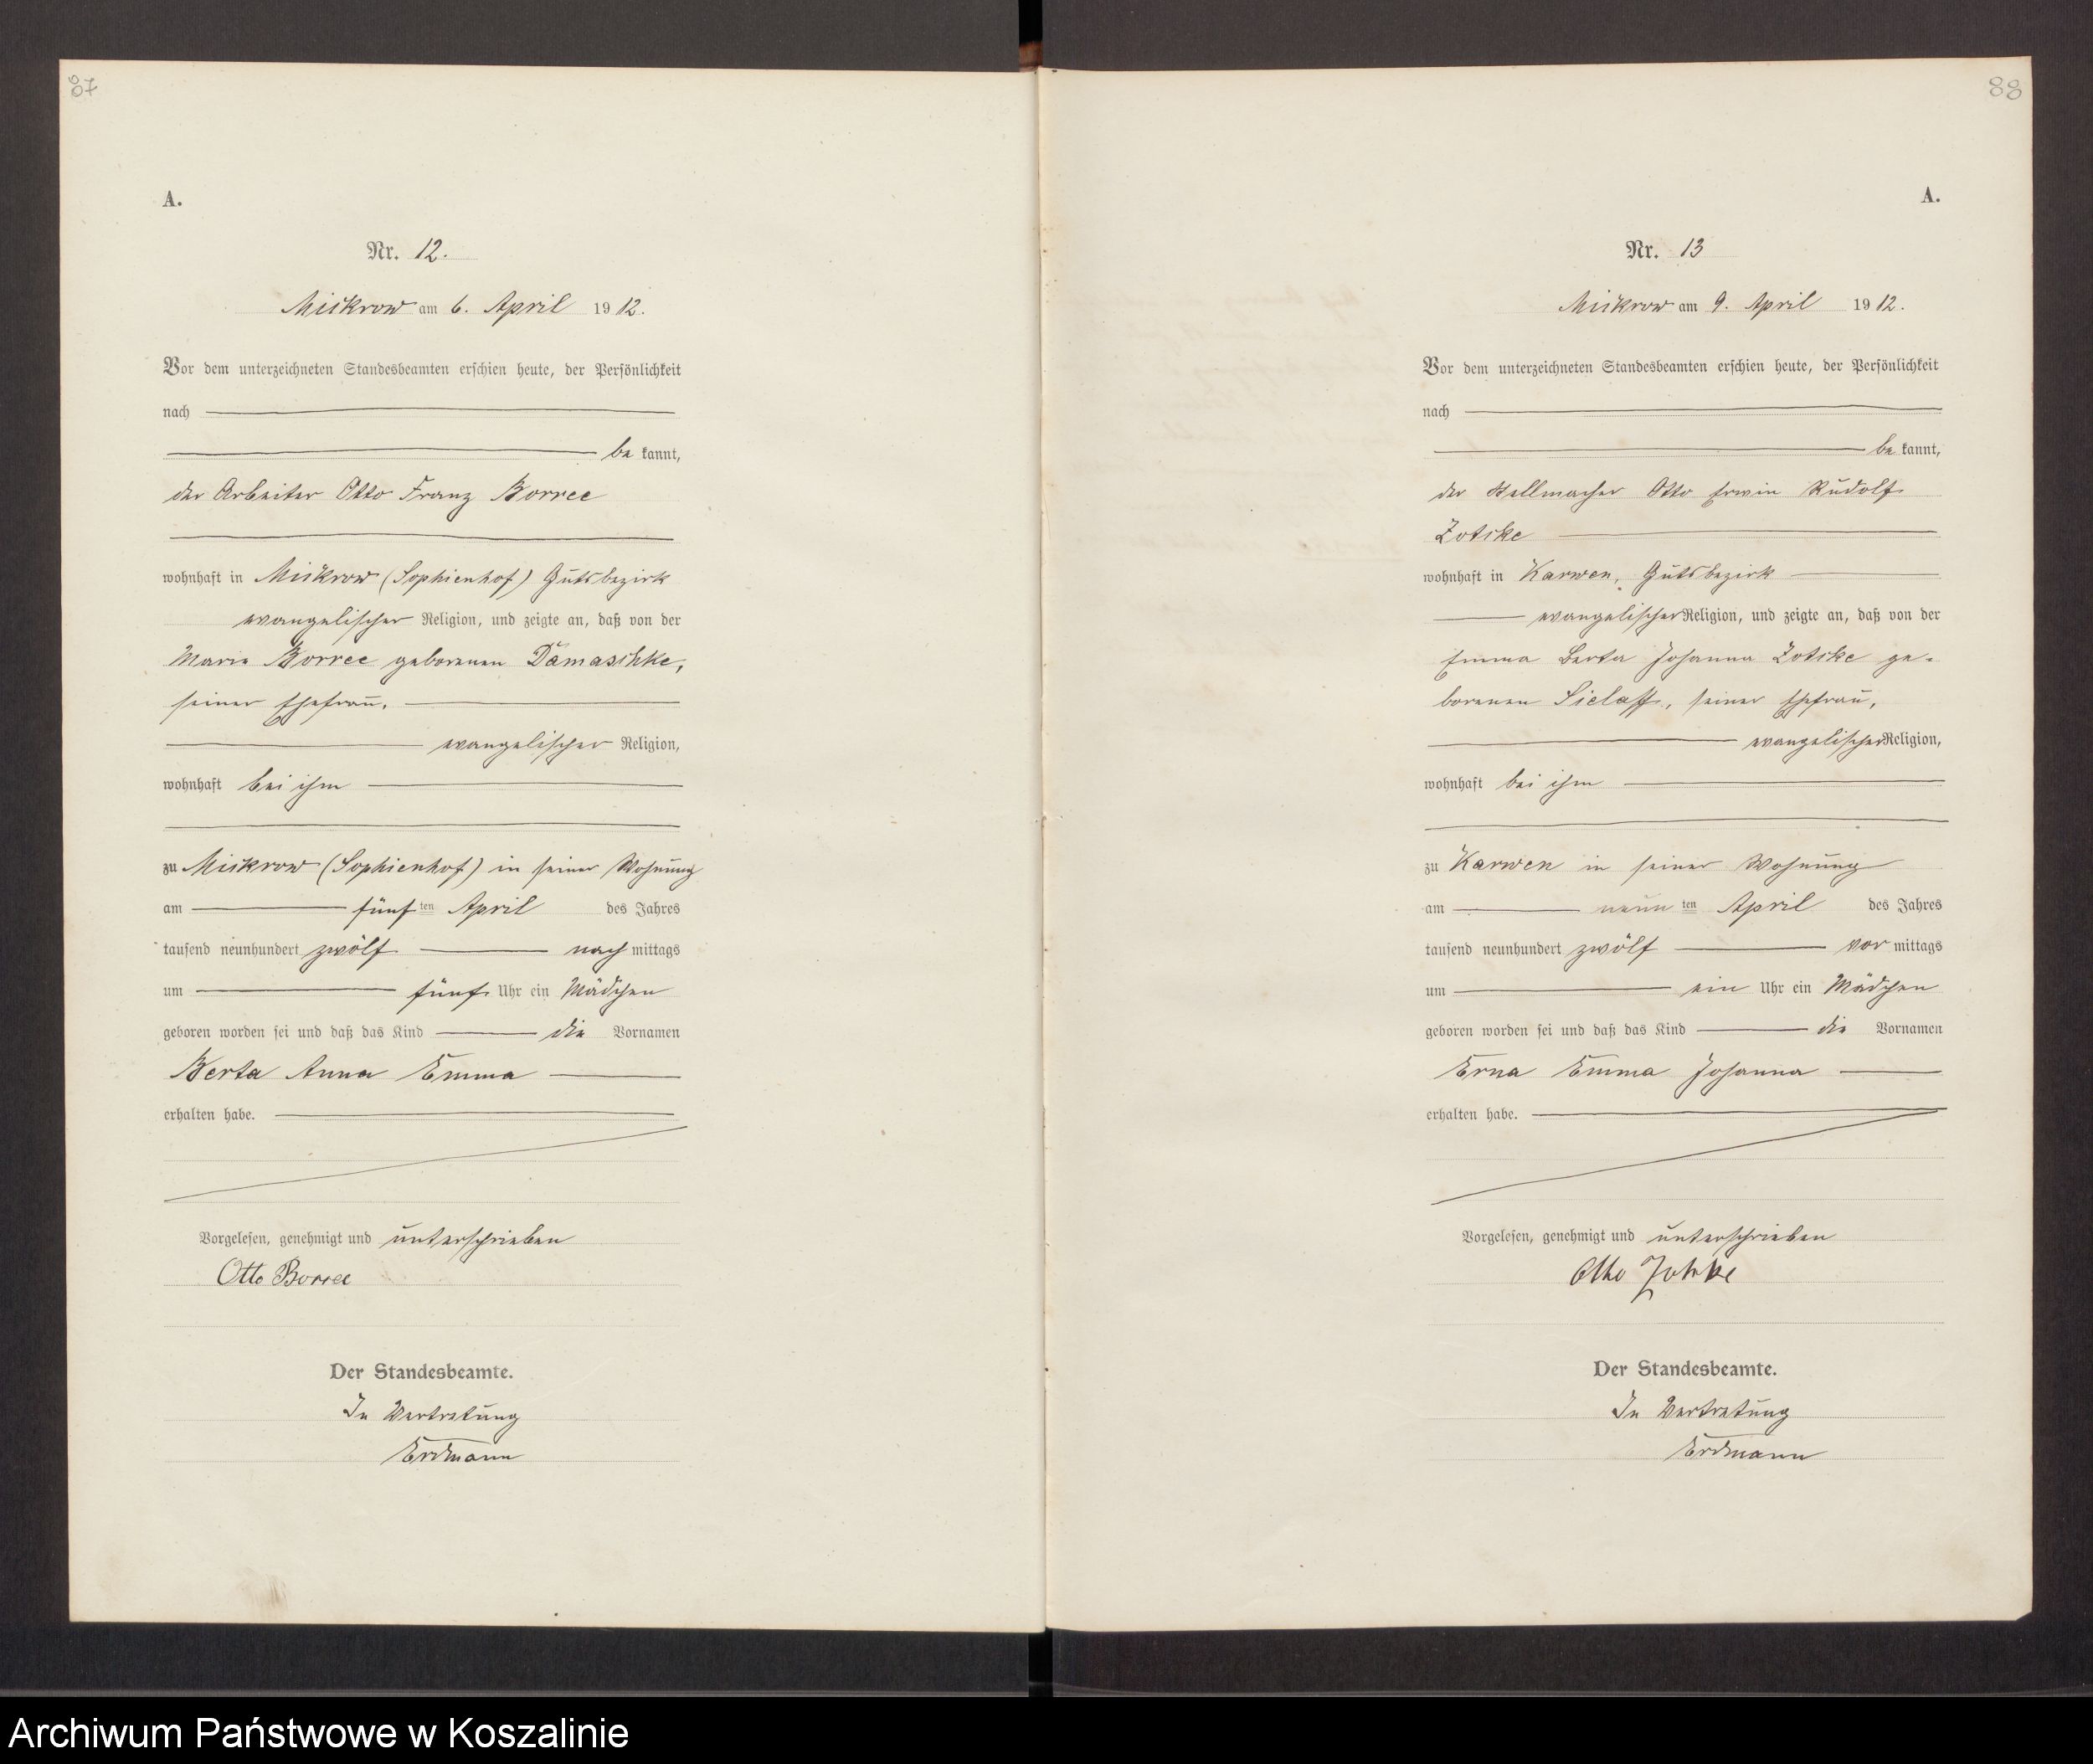 87
A.
Nr. 12.
Mickrow am 6. April 1912.
Vor dem unterzeichneten Standesbeamten erschien heute, der Persönlichkeit
nach
be kannt,
der Arbeiter Otto Franz Borree
wohnhaft in Mickrow (Sophienhof) Gutsbezirk
evangelischer Religion, und zeigte an, daß von der
Marie Borree geborenen Damaschke,
seiner Ehefrau,
evangelischer Religion,
wohnhaft bei ihm
zu Mickrow (Sophienhof) in seiner Wohnung
am fünf ten April des Jahres
tausend neunhundert zwölf nach mittags
um fünf Uhr ein Mädchen
geboren worden sei und daß das Kind die Vornamen
Berta Anna Emma
erhalten habe.
Vorgelesen, genehmigt und unterschrieben
Otto Borree
Der Standesbeamte.
In Vertretung
Erdmann
88
A.
Nr. 13
Mickrow am 9. April 1912.
Vor dem unterzeichneten Standesbeamten erschien heute, der Persönlichkeit
nach
be kannt,
der Stellmacher Otto Erwin Rudolf
Zotzke
wohnhaft in Karwen, Gutsbezirk
evangelischer Religion, und zeigte an, daß von der
Emma Berta Johanna Zotzke ge-
borenen Sielaff, seiner Ehefrau,
evangelischer Religion,
wohnhaft bei ihm
zu Karwen in seiner Wohnung
am neun ten April des Jahres
tausend neunhundert zwölf vor mittags
um ein Uhr ein Mädchen
geboren worden sei und daß das Kind die Vornamen
Erna Emma Johanna
erhalten habe.
Vorgelesen, genehmigt und unterschrieben
Otto Zotzke
Der Standesbeamte.
In Vertretung
Erdmann
Archiwum Państwowe w Koszalinie